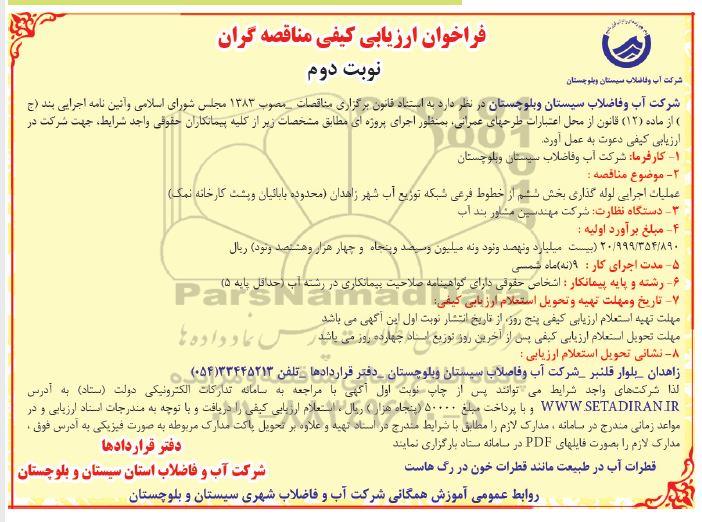 فراخوان ارزیابی کیفی مناقصه گران
نوبت دوم
شرکت آب وفاضلاب سیستان وبلوچستان
شرکت آب وفاضلاب سیستان وبلوچستان در نظر دارد به استناد قانون برگزاری مناقصات _مصوب ۱۳۸۳ مجلس شورای اسلامی وآئین نامه اجرایی بند (ج
) از ماده (۱۲) قانون از محل اعتبارات طرحهای عمرانی، بمنظور اجرای پروژه ای مطابق مشخصات زیر از کلیه پیمانکاران حقوقی واجد شرایط، جهت شرکت در
ارزیابی کیفی دعوت به عمل آورد.
۱- کارفرما: شرکت آب وفاضلاب سیستان وبلوچستان
۲- موضوع مناقصه :
عملیات اجرایی لوله گذاری بخش ششم از خطوط فرعی شبکه توزیع آب شهر زاهدان (محدوده بابائیان وپشت کارخانه نمک)
۳- دستگاه نظارت: شرکت مهندسین مشاور بند آب
۴- مبلغ برآورد اولیه :
۲۰/۹۹۹/۳۵۴/۸۹۰ (بیست میلیارد ونهصد ونود ونه میلیون وسیصد وپنجاه و چهار هزار وهشتصد ونود) ریال
۵- مدت اجرای کار : ۹(نه)ماه شمسی
۶- رشته و پایه پیمانکار : اشخاص حقوقی دارای گواهینامه صلاحیت پیمانکاری در رشته آب (حداقل پایه ۵)
۷- تاریخ ومهلت تهیه وتحویل استعلام ارزیابی کیفی:
مهلت تهیه استعلام ارزیابی کیفی پنج روز، از تاریخ انتشار نوبت اول این آگهی می باشد
مهلت تحویل استعلام ارزیابی کیفی پس از آخرین روز توزیع اسناد چهارده روز می باشد
۸- نشانی تحویل استعلام ارزیابی :
زاهدان _بلوار قلنبر _شرکت آب وفاضلاب سیستان وبلوچستان _دفتر قراردادها _تلفن ۳۳۴۴۵۲۱۳(۰۵۴)
لذا شرکت‌های واجد شرایط می توانند پس از چاپ نوبت اول آگهی با مراجعه به سامانه تدارکات الکترونیکی دولت (ستاد) به آدرس
WWW.SETADIRAN.IR و با پرداخت مبلغ ۵۰۰۰۰ (پنجاه هزار ) ریال ، استعلام ارزیابی کیفی را دریافت و با توجه به مندرجات اسناد ارزیابی و در
مواعد زمانی مندرج در سامانه ، مدارک لازم را مطابق با شرایط مندرج در اسناد تهیه و علاوه بر تحویل پاکت مدارک مربوطه به صورت فیزیکی به آدرس فوق ،
مدارک لازم را بصورت فایلهای PDF در سامانه ستاد بارگزاری نمایند
دفتر قراردادها
شرکت آب و فاضلاب استان سیستان و بلوچستان
قطرات آب در طبیعت مانند قطرات خون در رگ هاست
روابط عمومی آموزش همگانی شرکت آب و فاضلاب شهری سیستان و بلوچستان
ParsNamadData